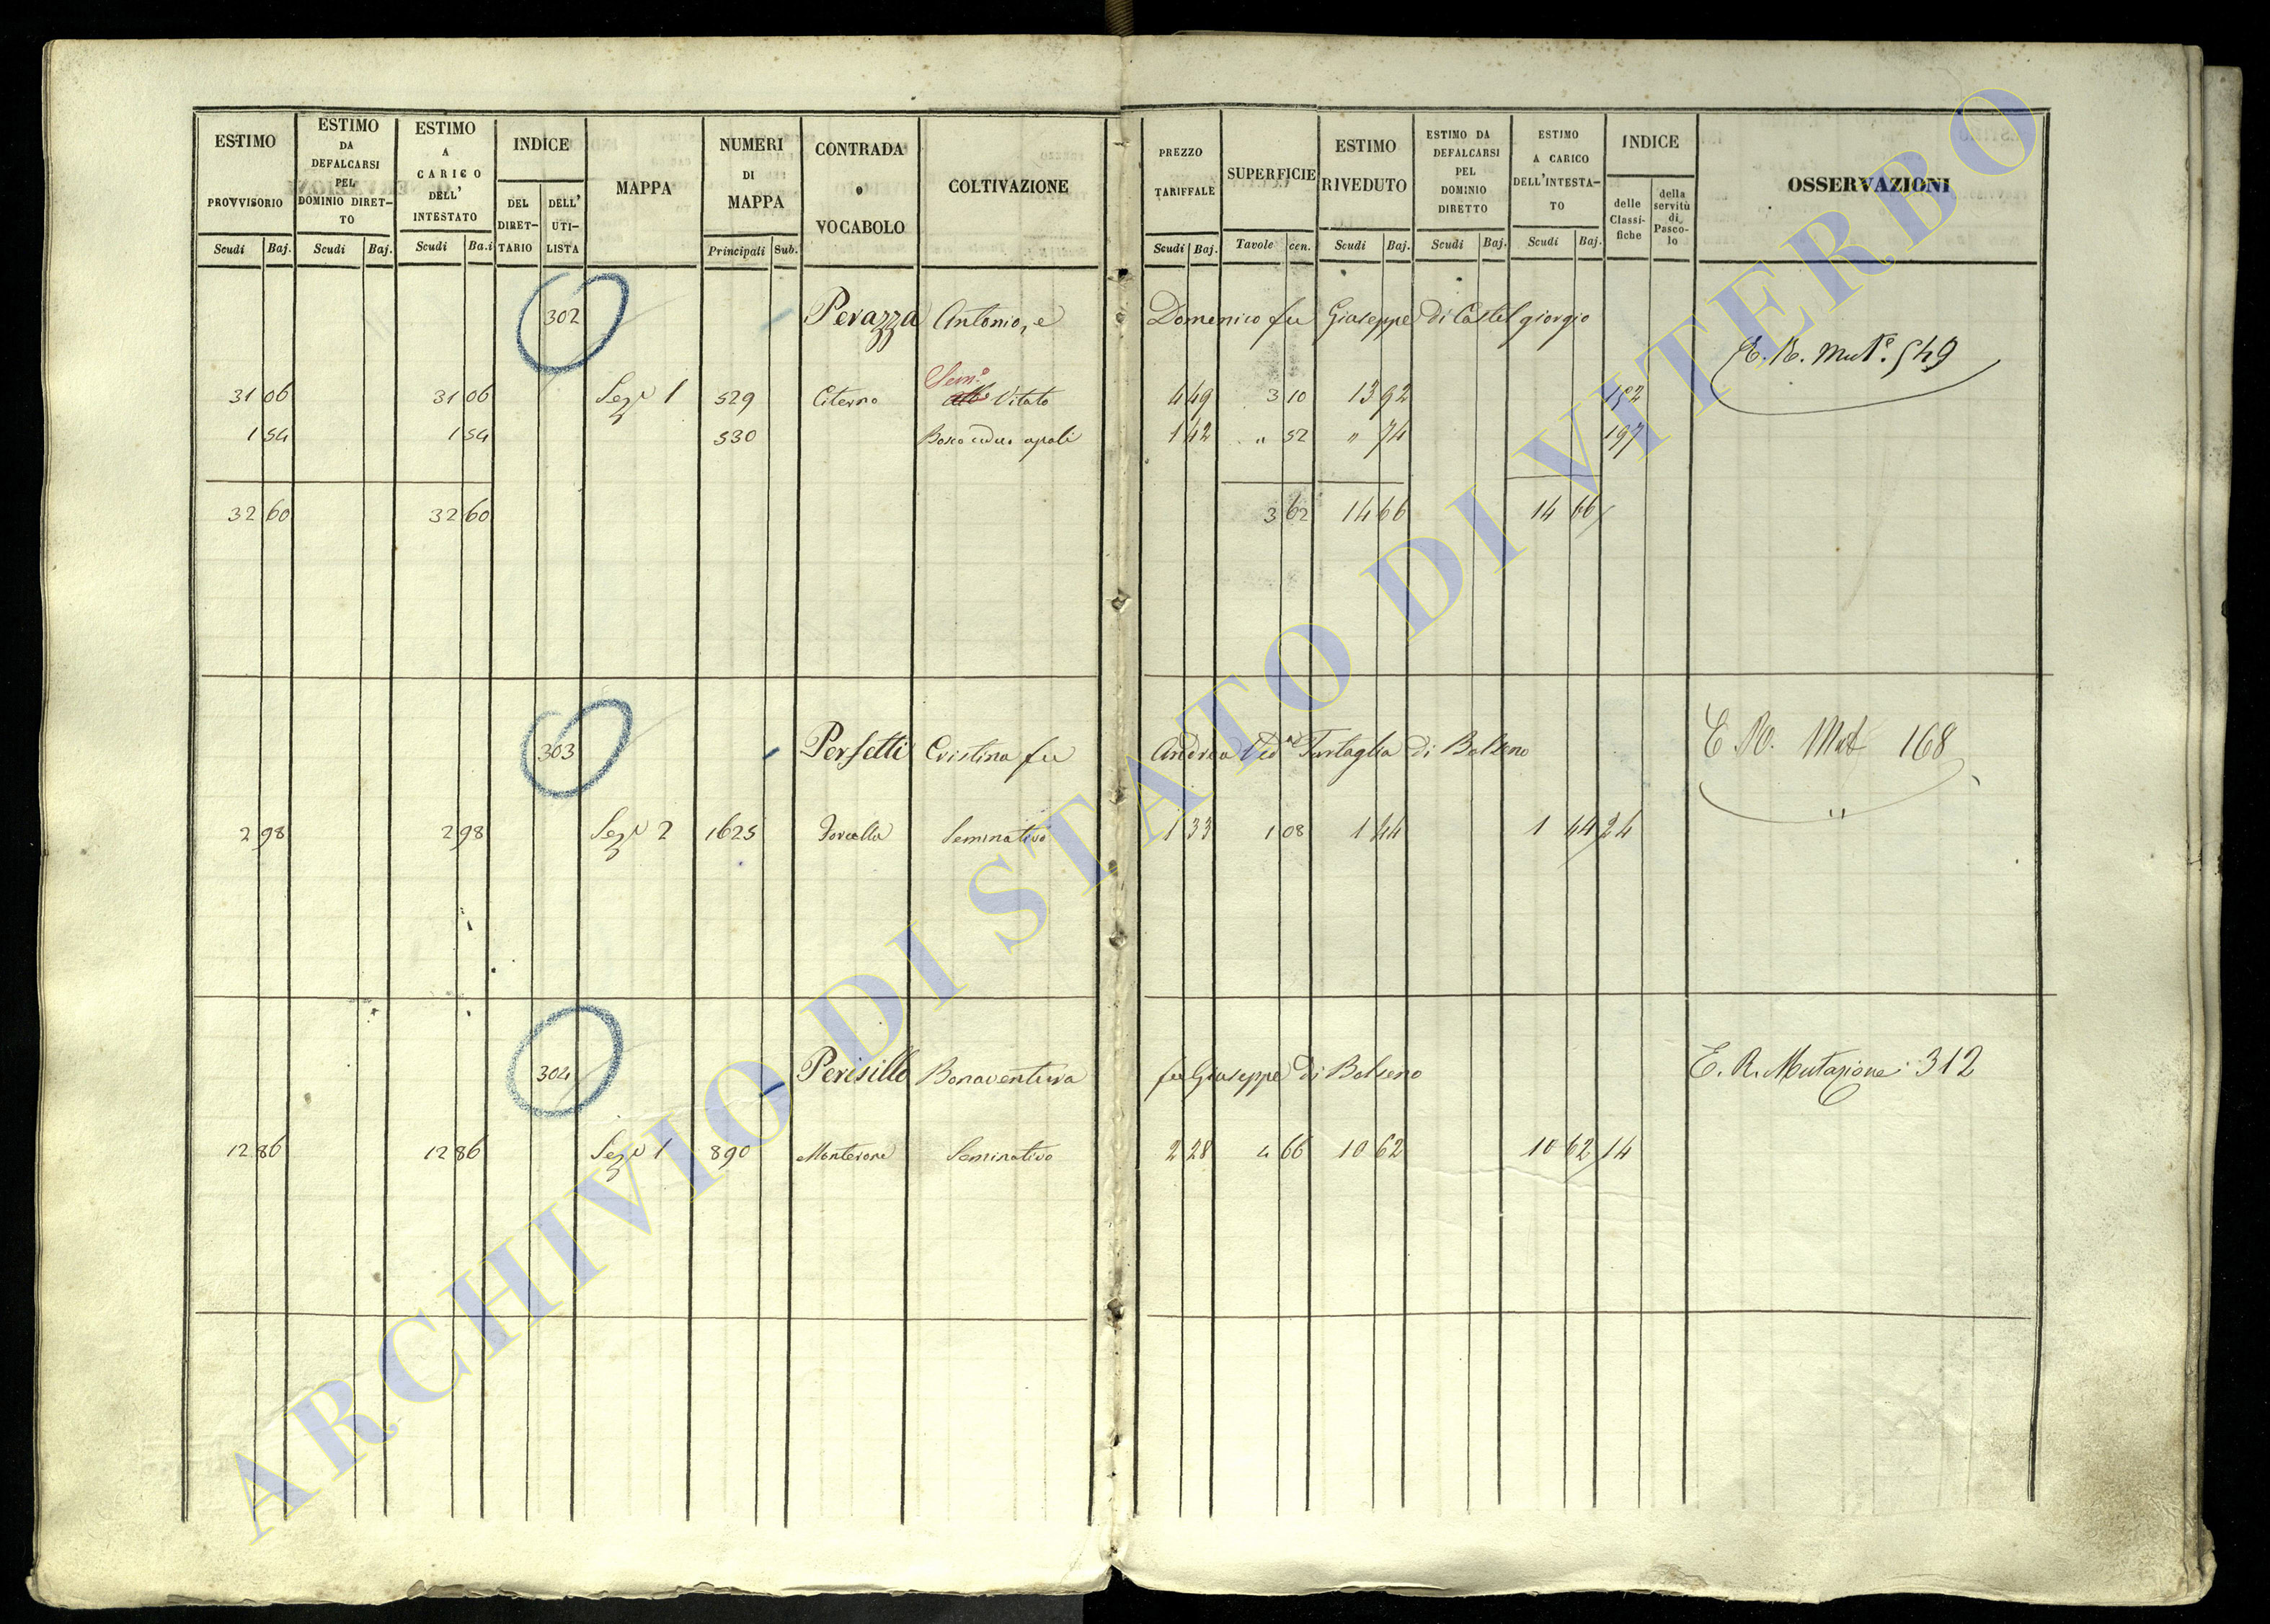 ESTIMO PROVVISORIO
Scudi Baj.
ESTIMO DA DEFALCARSI PEL DOMINIO DIRET- TO
Scudi Baj.
ESTIMO A CARICO DELL' INTESTATO
Scudi Ba.i
INDICE
DEL DIRET- TARIO
DELL' UTI- LISTA
MAPPA
NUMERI DI MAPPA
Principali Sub.
CONTRADA o VOCABOLO
COLTIVAZIONE
PREZZO TARIFFALE
Scudi Baj.
SUPERFICIE
Tavole cen.
ESTIMO RIVEDUTO
Scudi Baj.
ESTIMO DA DEFALCARSI PEL DOMINIO DIRETTO
Scudi Baj.
ESTIMO A CARICO DELL'INTESTA- TO
Scudi Baj.
INDICE
delle Classi- fiche
della servitù di Pasco- lo
OSSERVAZIONI
302 Perazza Antonio, e Domenico fu Giuseppe di Castel giorgio
E. R. Mut. 549
Sem.o
31 06 31 06 Sez. 1 529 Citerno Vitato 4 49 3 10 13 92 152
1 54 1 54 530 Bosco ceduo a pali 1 42 " 52 " 74 197
32 60 32 60 3 62 14 66 14 66
303 Perfetti Cristina fu Andrea Ved.a Tartaglia di Bolseno
E. R. Mut 168
2 98 2 98 Sez. 2 1625 Forcella Seminativo 1 33 1 08 1 44 1 44 24
304 Perisillo Bonaventura fu Giuseppe di Bolseno
E. R. Mutazione 312
12 86 12 86 Sez. 1 890 Monterone Seminativo 2 28 4 66 10 62 10 62 14
ARCHIVIO DI STATO DI VITERBO